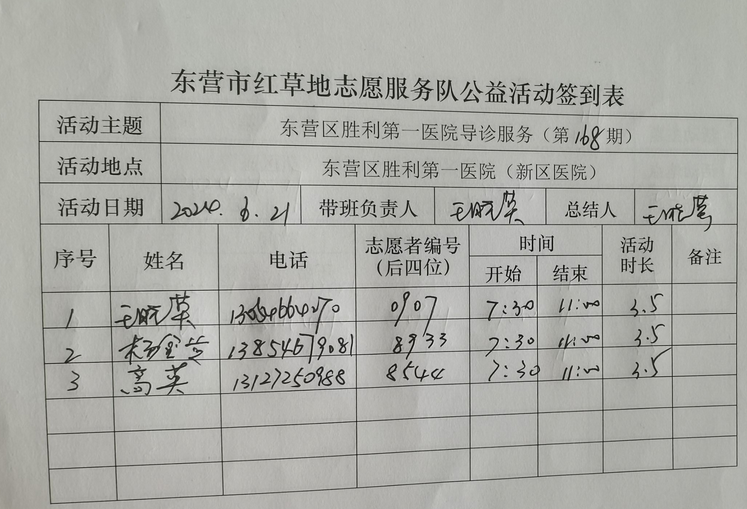 东营市红草地志愿服务队公益活动签到表
活动主题 东营区胜利第一医院导诊服务（第168期）
活动地点 东营区胜利第一医院（新区医院）
活动日期 2024.6.21 带班负责人 王晓英 总结人 王晓英
序号 姓名 电话 志愿者编号（后四位） 时间 开始 结束 活动时长 备注
1 王晓英 13064664070 0907 7:30 11:00 3.5
2 杨 13854679081 8933 7:30 11:00 3.5
3 高英 13127250988 8544 7:30 11:00 3.5